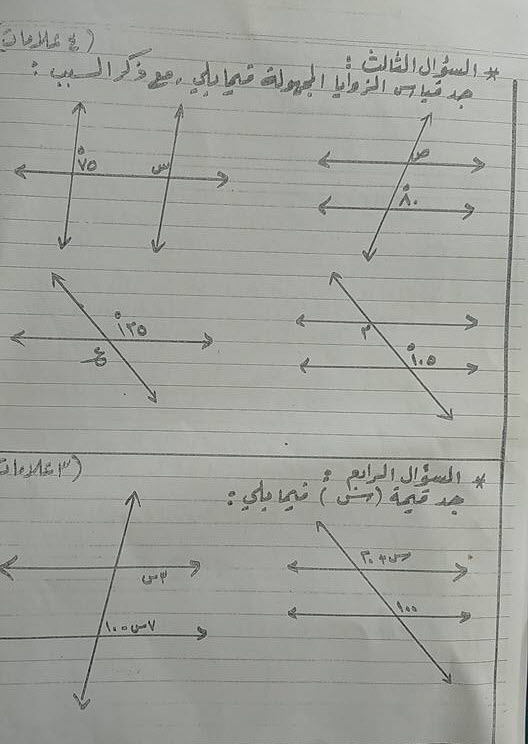 (٤ علامات)
* السؤال الثالث :
جد قياس الزوايا المجهولة فيما يلي , مع ذكر السبب :
ص
°٨٠
س
°٧٥
م
°١٠٥
°١٣٥
ع
(٣ علامات)
* السؤال الرابع :
جد قيمة (س) فيما يلي :
س+٢٠
١٠٠
٣س
٧س-١٠٠